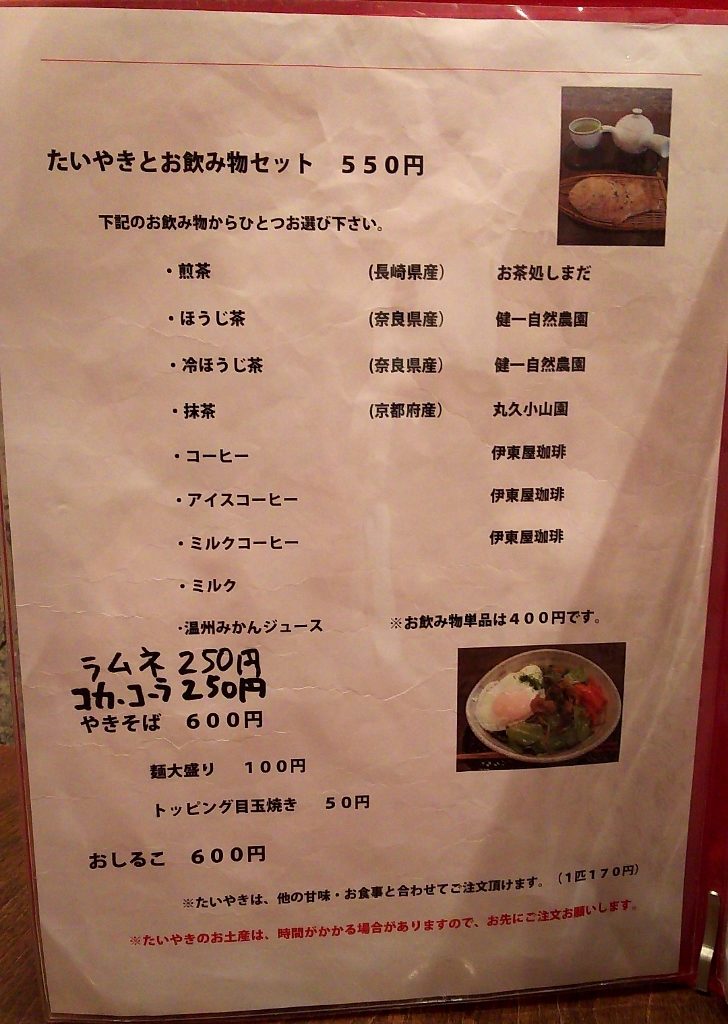 たいやきとお飲み物セット　５５０円
下記のお飲み物からひとつお選び下さい。
・煎茶　(長崎県産)　お茶処しまだ
・ほうじ茶　(奈良県産)　健一自然農園
・冷ほうじ茶　(奈良県産)　健一自然農園
・抹茶　(京都府産)　丸久小山園
・コーヒー　伊東屋珈琲
・アイスコーヒー　伊東屋珈琲
・ミルクコーヒー　伊東屋珈琲
・ミルク
・温州みかんジュース　※お飲み物単品は４００円です。
ラムネ 250円
コカ・コーラ 250円
やきそば　６００円
麺大盛り　１００円
トッピング目玉焼き　５０円
おしるこ　６００円
※たいやきは、他の甘味・お食事と合わせてご注文頂けます。（１匹１７０円）
※たいやきのお土産は、時間がかかる場合がありますので、お先にご注文お願いします。